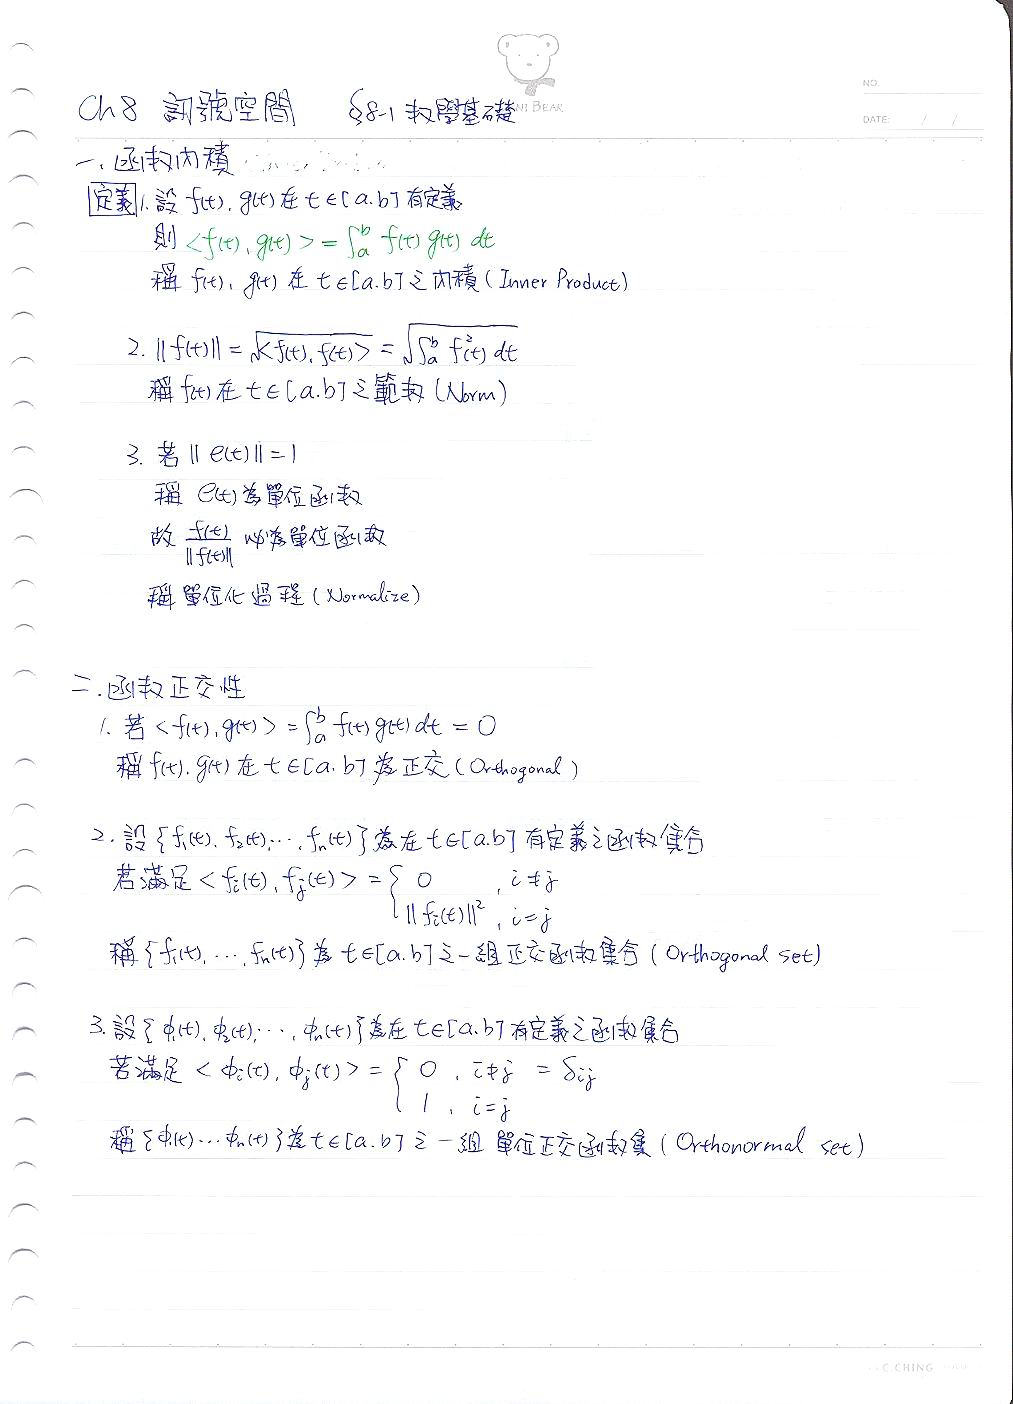 NO.
DATE: / /
Ch 8 訊號空間 §8-1 數學基礎
NI BEAR
一. 函數內積
定義 1. 設 f(t), g(t) 在 t∈[a.b] 有定義
則 <f(t), g(t)> = ∫_a^b f(t) g(t) dt
稱 f(t), g(t) 在 t∈[a.b] 之內積 (Inner Product)
2. ||f(t)|| = √<f(t), f(t)> = √∫_a^b f²(t) dt
稱 f(t) 在 t∈[a.b] 之範數 (Norm)
3. 若 || e(t) || = 1
稱 e(t) 為單位函數
故 f(t)/||f(t)|| 必為單位函數
稱 單位化 過程 (Normalize)
二. 函數正交性
1. 若 <f(t), g(t)> = ∫_a^b f(t) g(t) dt = 0
稱 f(t). g(t) 在 t∈[a.b] 為正交 (Orthogonal)
2. 設 {f₁(t). f₂(t), ⋯, fₙ(t)} 為在 t∈[a.b] 有定義之函數集合
若滿足 <fᵢ(t), fⱼ(t)> = { 0 , i≠j
||fᵢ(t)||² , i=j
稱 {f₁(t), ⋯, fₙ(t)} 為 t∈[a.b] 之一組 正交函數集合 (Orthogonal set)
3. 設 {φ₁(t), φ₂(t), ⋯, φₙ(t)} 為在 t∈[a.b] 有定義之函數集合
若滿足 <φᵢ(t), φⱼ(t)> = { 0 , i≠j = δᵢⱼ
1 , i=j
稱 {φ₁(t) ⋯ φₙ(t)} 為 t∈[a.b] 之一組 單位正交函數集 (Orthonormal set)
C.CHING